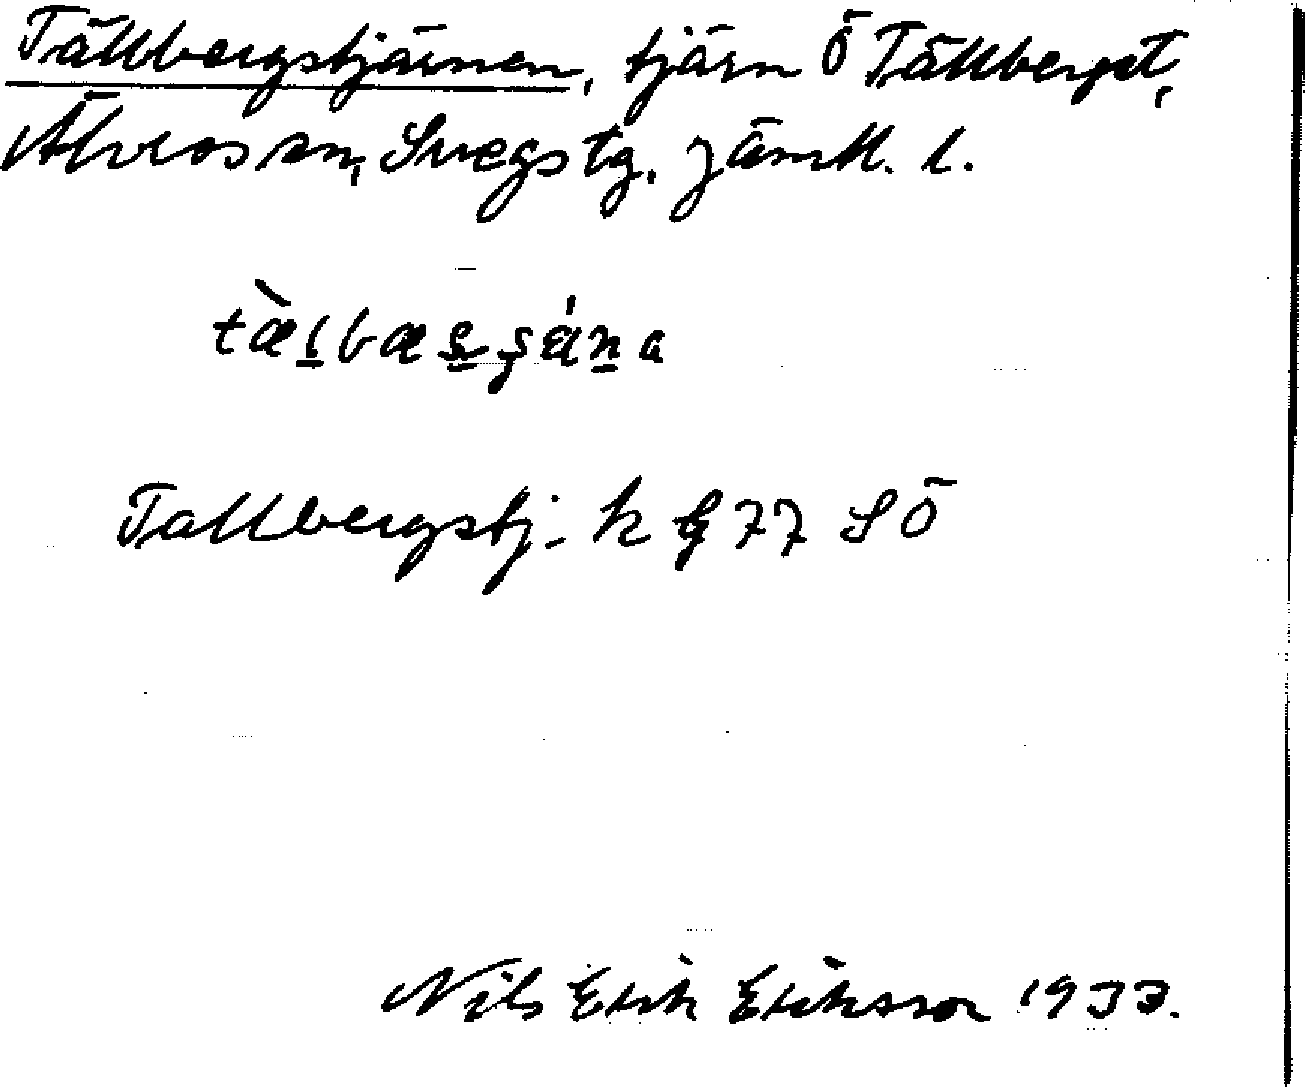 Tällbergstjärnen, tjärn Ö Tällberget,
Älvros sn, Svegs tg. Jämtl. l.
Tallbergstj. k bg 77 SÖ
Nils Erik Eriksson 1933.